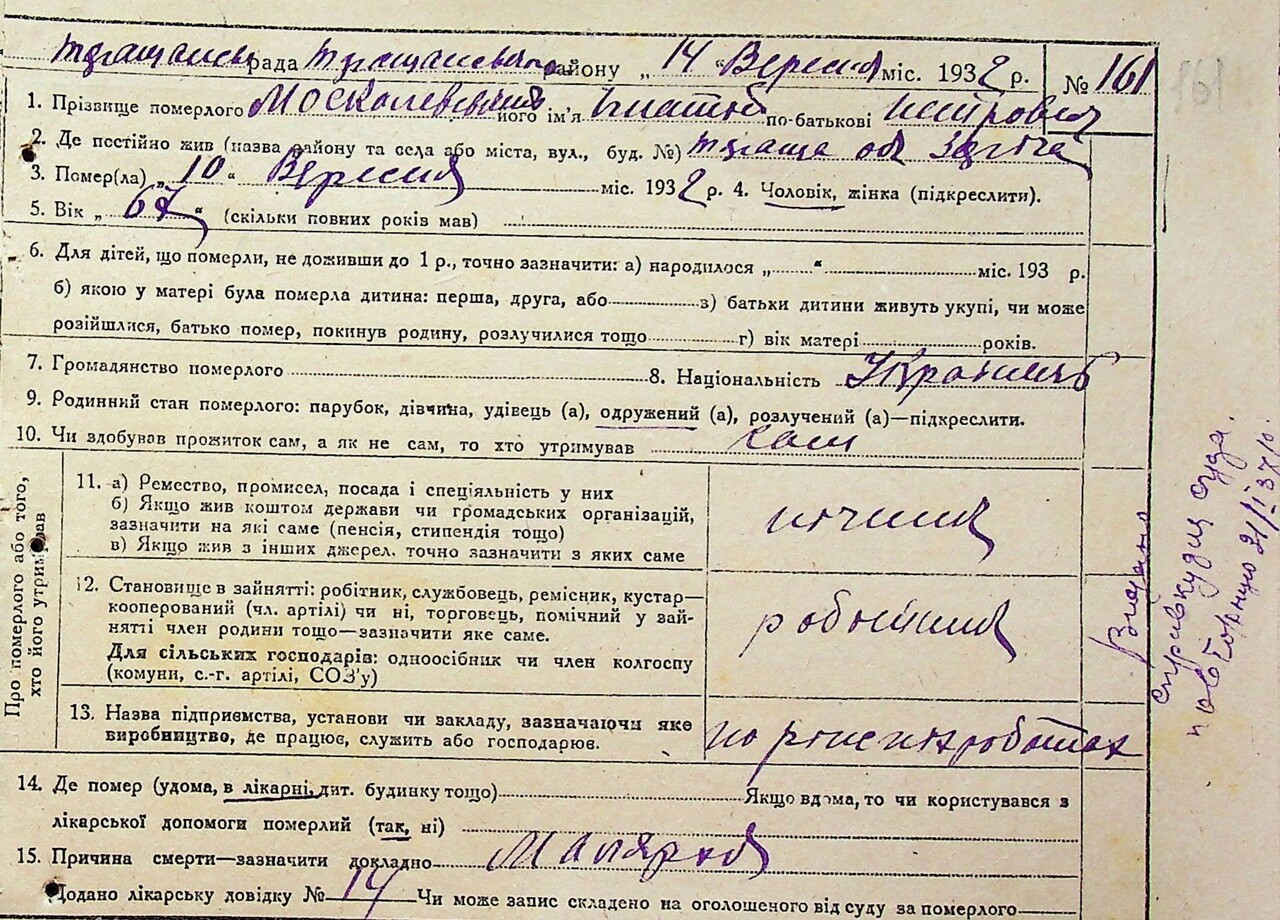 рада району „ 14 “ Вересня міс. 1932 р. № 161
1. Прізвище померлого Москалевський його ім'я Гнатій по-батькові Петрович
2. Де постійно жив (назва району та села або міста, вул., буд. №)
3. Помер(ла) „ 10 “ Вересня міс. 1932 р. 4. Чоловік, жінка (підкреслити).
5. Вік „ 67 “ (скільки повних років мав)
6. Для дітей, що померли, не доживши до 1 р., точно зазначити: а) народилося „ “ міс. 193 р.
б) якою у матері була померла дитина: перша, друга, або з) батьки дитини живуть укупі, чи може
розійшлися, батько помер, покинув родину, розлучилися тощо г) вік матері років.
7. Громадянство померлого 8. Національність Українець
9. Родинний стан померлого: парубок, дівчина, удівець (а), одружений (а), розлучений (а)—підкреслити.
10. Чи здобував прожиток сам, а як не сам, то хто утримував сам
Про померлого або того,
хто його утримував
11. а) Ремество, промисел, посада і спеціяльність у них
б) Якщо жив коштом держави чи громадських організацій,
зазначити на які саме (пенсія, стипендія тощо)
в) Якщо жив з інших джерел, точно зазначити з яких саме
12. Становище в зайнятті: робітник, службовець, ремісник, кустар—
кооперований (чл. артілі) чи ні, торговець, помічний у зай-
нятті член родини тощо—зазначити яке саме.
Для сільських господарів: одноосібник чи член колгоспу
(комуни, с.-г. артілі, СОЗ'у)
робочий
13. Назва підприємства, установи чи закладу, зазначаючи яке
виробництво, де працює, служить або господарює.
14. Де помер (удома, в лікарні, дит. будинку тощо) Якщо вдома, то чи користувався з
лікарської допомоги померлий (так, ні)
15. Причина смерти—зазначити докладно Малярія
Додано лікарську довідку № 14 Чи може запис складено на оголошеного від суду за померлого
Видано
161